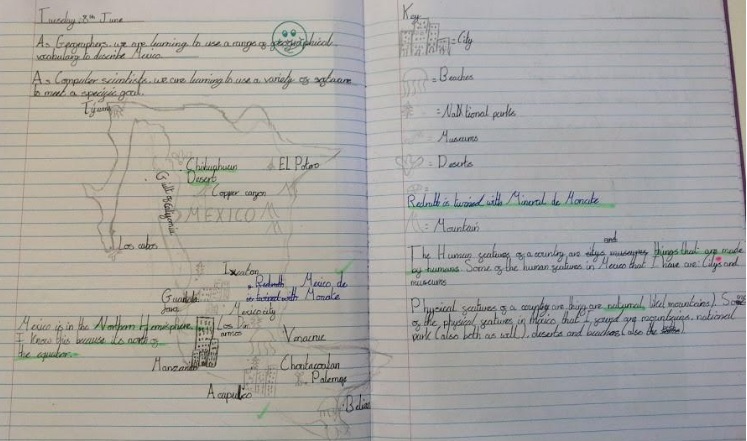 Tuesday 8th June
As Geographers, we are learning to use a range of geographical
vocabulary to describe Mexico.
As Computer scientists, we are learning to use a variety of software
to meet a specific goal.
Tijuana
Chihuahuan
Desert
EL Potosi
Copper canyon
Gulf of California
MEXICO
Los cabos
Redruth
Mexico de
is twinned with Monate
Mexico city
Mexico is in the Northern Hemisphere
I know this because its north of
the equator.
Veracruz
Manzanillo
Palenque
Acapulco
Key
= City
= Beaches
= National parks
Museums
= Deserts
Redruth is twinned with Mineral de Monate
= Mountain
and
The Human features of a country are citys museums things that are made
by humans. Some of the human features in Mexico that I have are: Citys and
museums
Physical features of a country are thing are natural like mountains). Some
of the physical features in mexico that I found are mountains, national
park (also both as well), deserts and beaches (also the